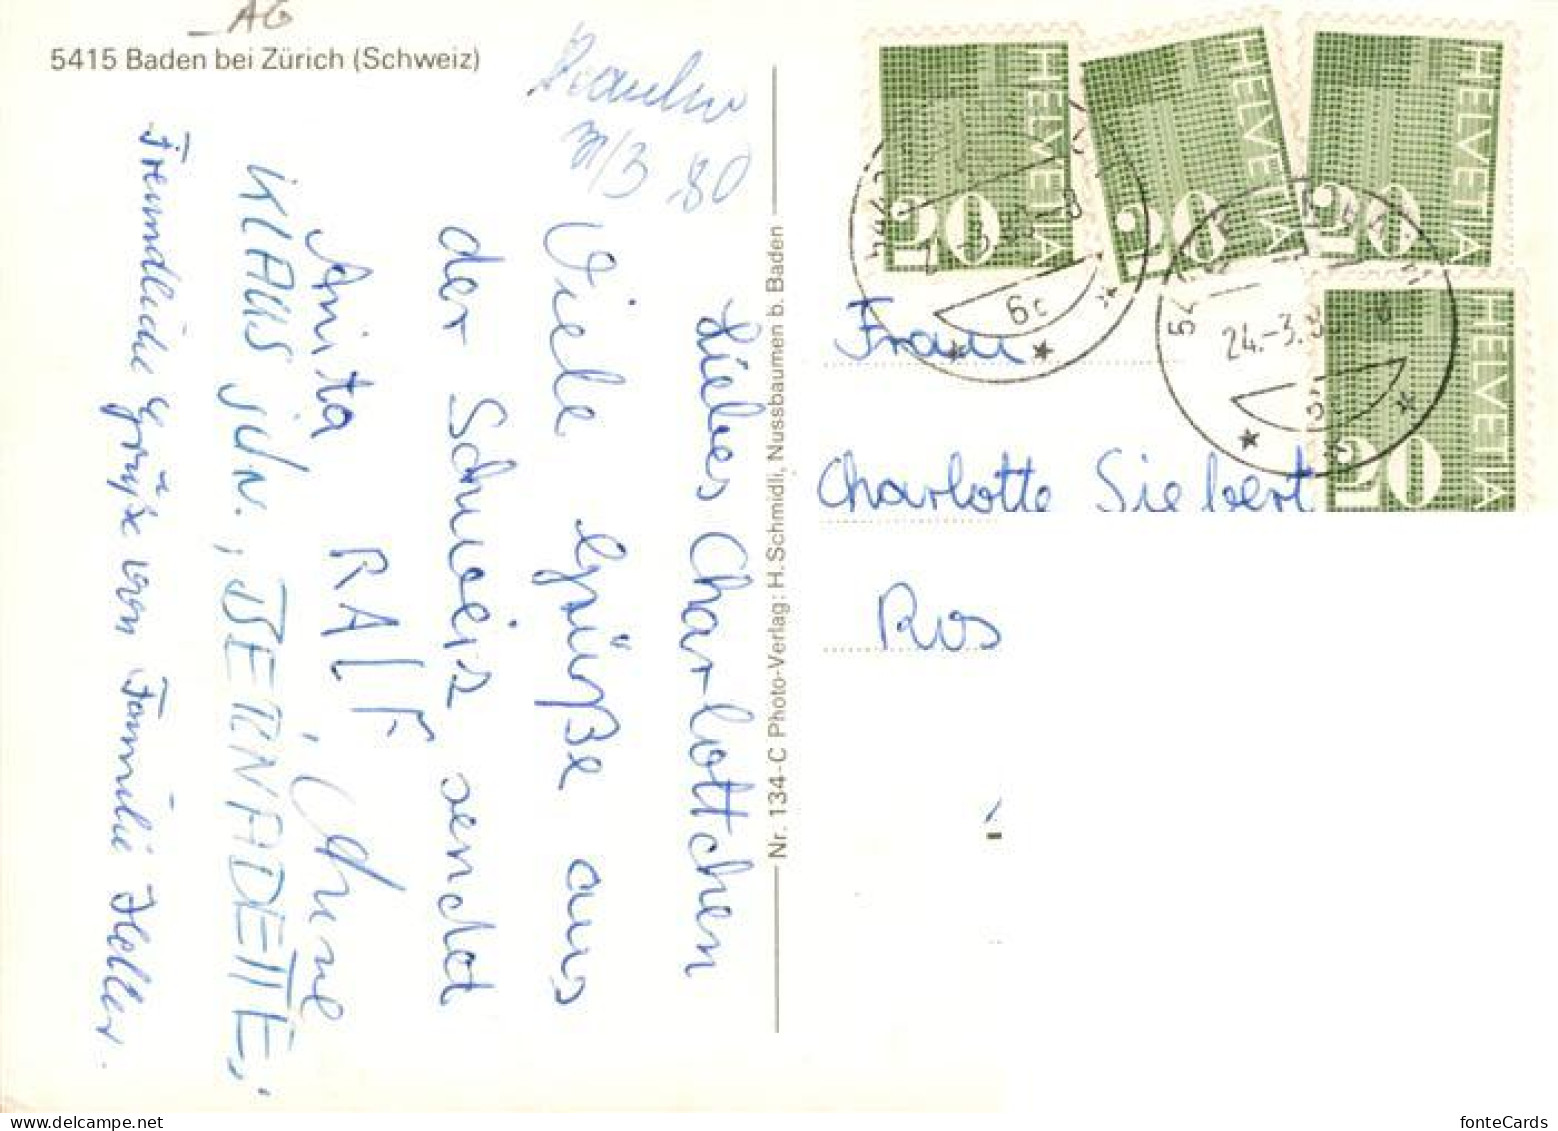 AG
5415 Baden bei Zürich (Schweiz)
3/3 80
Liebes Charlottchen
Viele Grüße aus
der Schweiz sendet
Anita RALF,
KLAUS JUN., BERNADETTE,
Freundliche Grüße von Familie Heller.
Nr. 134-C Photo-Verlag: H. Schmidli, Nussbaumen b. Baden
HELVETIA
20
HELVETIA
20
HELVETIA
20
HELVETIA
20
6c
24.-3.8
Frau
Charlotte Siebert
Ros
delcampe.net
fonteCards